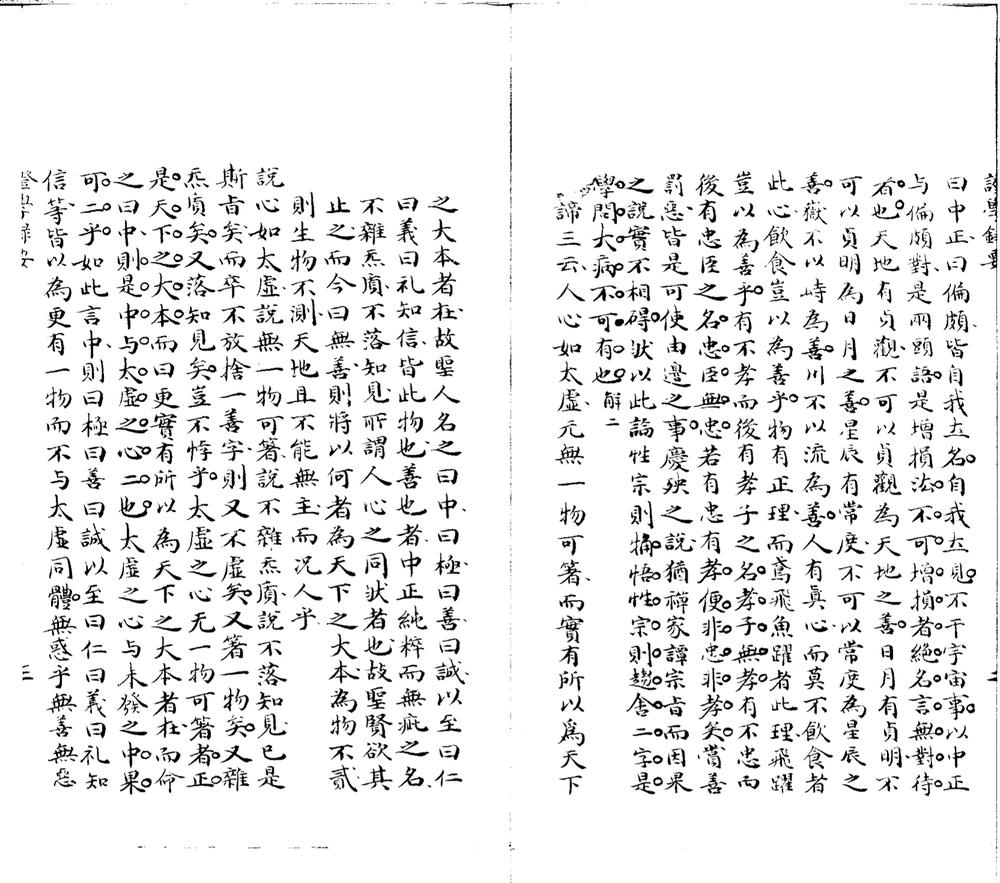 證學錄要
曰中正曰偏頗皆自我立名自我立見不干宇宙事以中正
与偏頗對是兩頭語是增損法不可增損者絕名言無對待
者也天地有貞觀不可以貞觀為天地之善日月有貞明不
可以貞明為日月之善星辰有常度不可以常度為星辰之
善嶽不以峙為善川不以流為善人有真心而莫不飲食者
此心飲食豈以為善乎物有正理而鳶飛魚躍者此理飛躍
豈以為善乎有不孝而後有孝子之名孝子無孝有不忠而
後有忠臣之名忠臣無忠若有忠有孝便非忠非孝矣賞善
罰惡皆是可使由邊之事慶殃之說猶禪家譚宗旨而因果
之說實不相碍狀以此論性宗則㨶悟性宗則趨舍二字是
學問大病不可有也 解二
諦三云人心如太虛元無一物可著而實有所以爲天下
二
之大本者在故聖人名之曰中曰極曰善曰誠以至曰仁
曰義曰礼知信皆此物也善也者中正純粹而無疵之名
不雜炁質不落知見所謂人心之同狀者也故聖賢欲其
止之而今曰無善則將以何者為天下之大本為物不貳
則生物不測天地且不能無主而况人乎
說心如太虛說無一物可著說不雜炁質說不落知見已是
斯旨矣而卒不放捨一善字則又不虛矣又著一物矣又雜
炁質矣又落知見矣豈不悖乎太虛之心无一物可著者正
是天下之大本而曰更實有所以為天下之大本者在而命
之曰中則是中与太虛之心二也太虛之心与未發之中果
可二乎如此言中則曰極曰善曰誠以至曰仁曰義曰礼知
信等皆以為更有一物而不与太虛同體無惑乎無善無惡
證學錄要
三